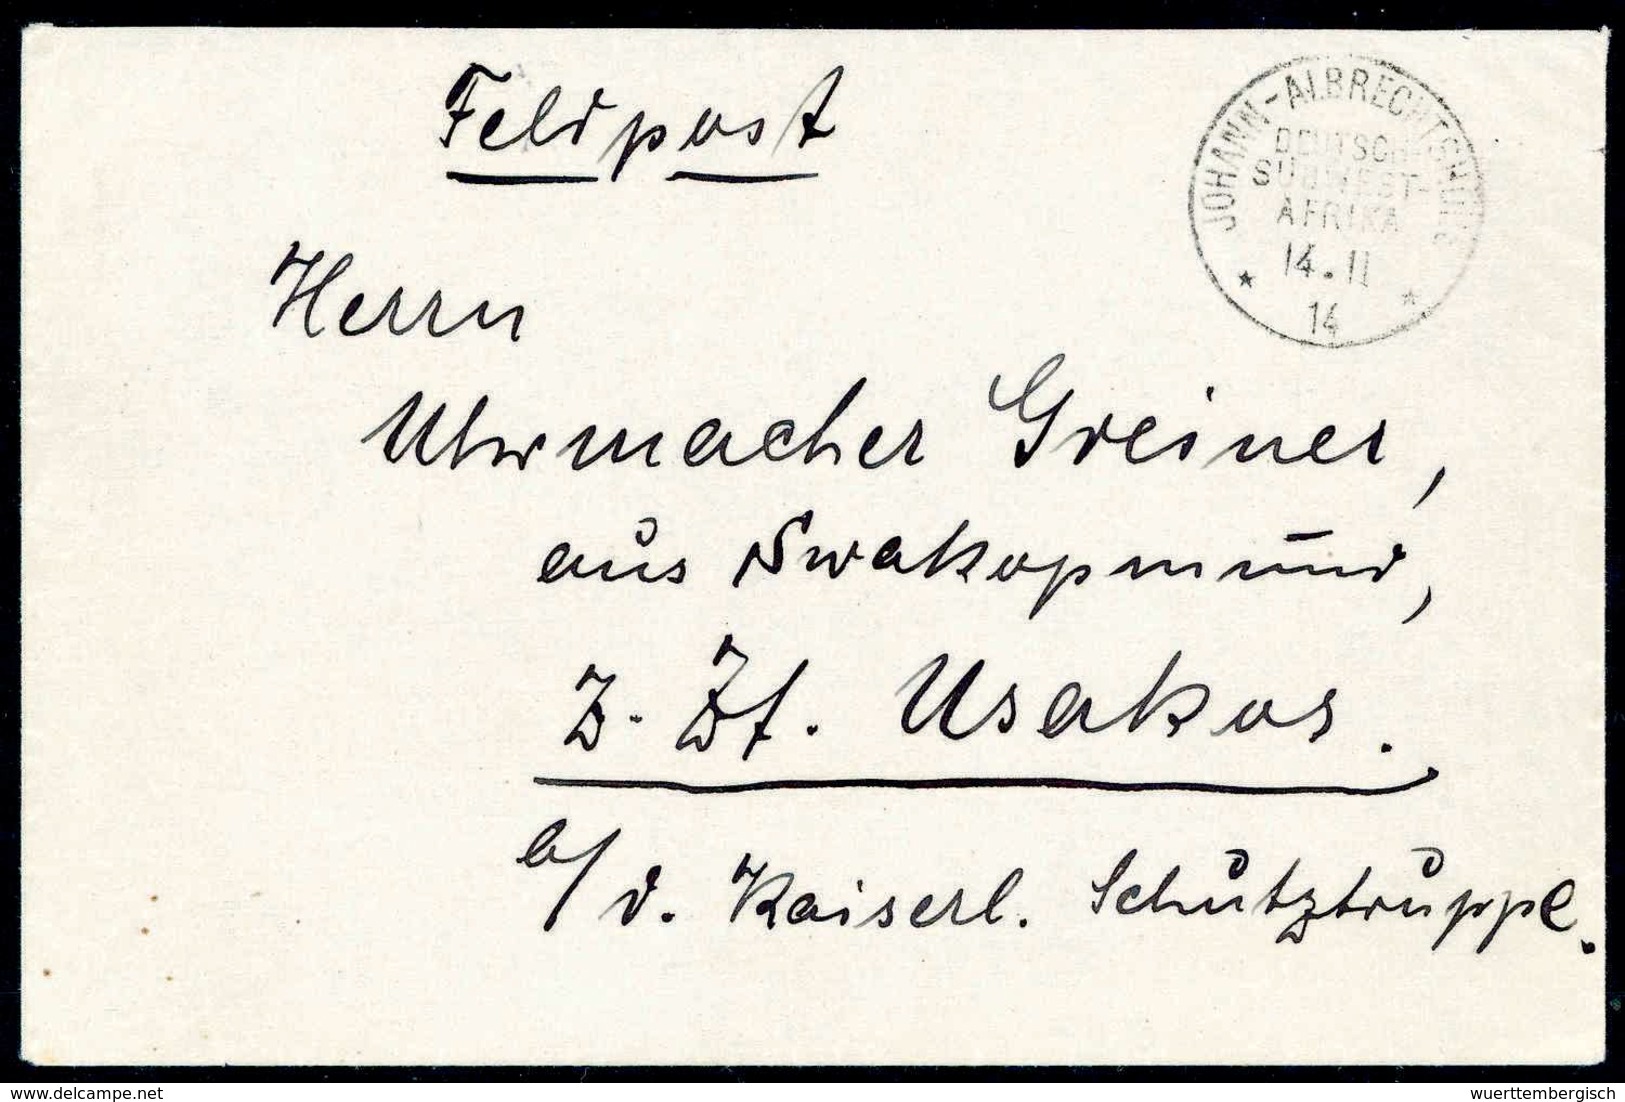 Feldpost
JOHANN-ALBRECHTSHÖHE
DEUTSCH-
SÜDWEST-
AFRIKA
14.11
14
Herrn
Uhrmacher Greiner,
aus Swakopmund,
z. Zt. Usakos.
b/d. Kaiserl. Schutztruppe.
© delcampe.net
wuerttembergisch